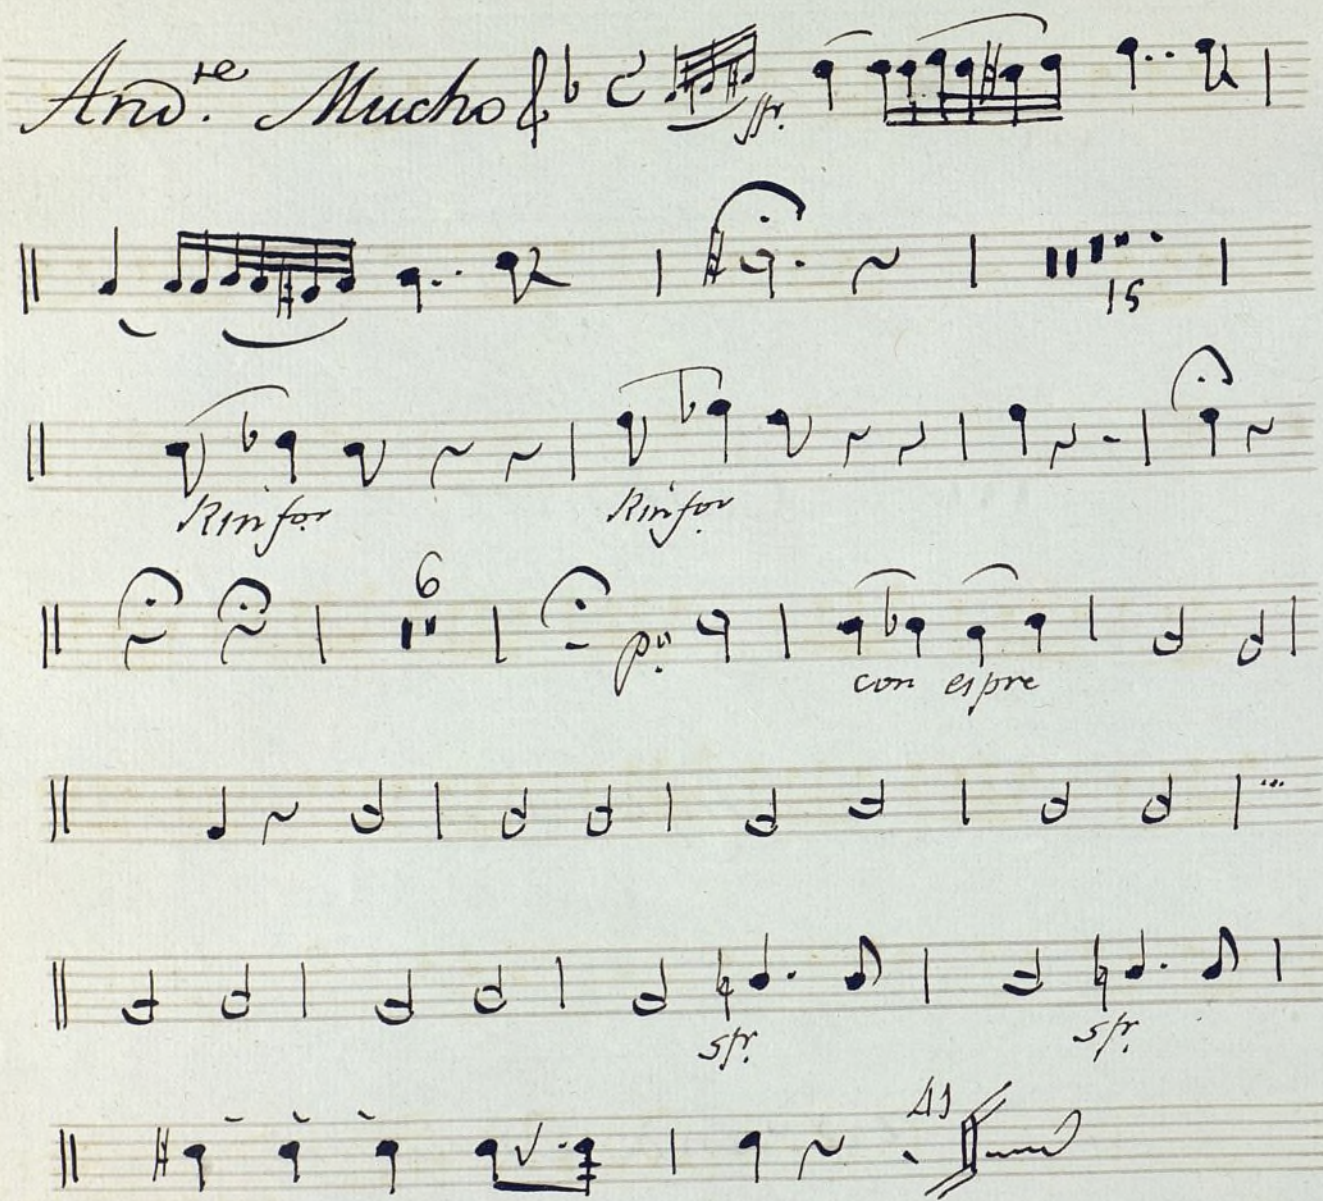 And.te Mucho
sfr.
15
Rinfor Rinfor
6
p.o
con espre
sfr. sfr.